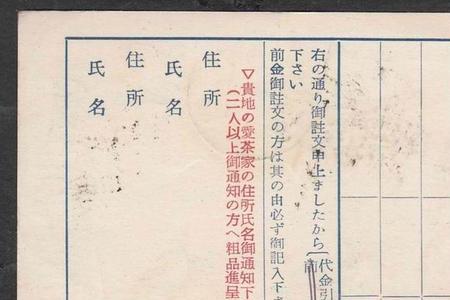 右の通り御註文申上ましたから(代金引
前
下さい
前金御註文の方は其の由必ず御記入下さ
▽貴地の愛茶家の住所氏名御通知下
(二人以上御通知の方へ粗品進呈
住所
氏名
住所
氏名